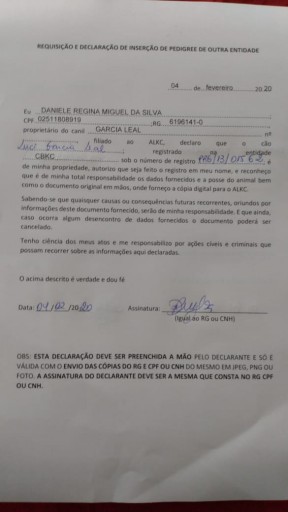 REQUISIÇÃO E DECLARAÇÃO DE INSERÇÃO DE PEDIGREE DE OUTRA ENTIDADE
04 de fevereiro 20 20
Eu DANIELE REGINA MIGUEL DA SILVA
CPF 02511808919 RG 6196141-0
proprietário do canil GARCIA LEAL nº
filiado ao ALKC, declaro que o cão
Leal registrado na entidade
CBKC sob o número de registro é
de minha propriedade, autorizo que seja feito o registro em meu nome, e reconheço
que é de minha total responsabilidade os dados fornecidos e a posse do animal bem
como o documento original em mãos, onde forneço a cópia digital para o ALKC.
Sabendo se que quaisquer causas ou consequências futuras recorrentes, oriundos por
informações deste documento fornecido, serão de minha responsabilidade. E que ainda,
caso ocorra algum desencontro de dados fornecidos o documento poderá ser
cancelado.
Tenho ciência dos meus atos e me responsabilizo por ações cíveis e criminais que
possam recorrer sobre as informações aqui declaradas.
O acima descrito é verdade e dou fé
Data: 04/02/2020 Assinatura:
(Igual ao RG ou CNH)
OBS: ESTA DECLARAÇÃO DEVE SER PREENCHIDA A MÃO PELO DECLARANTE E SÓ É
VÁLIDA COM O ENVIO DAS CÓPIAS DO RG E CPF OU CNH DO MESMO EM JPEG, PNG OU
FOTO. A ASSINATURA DO DECLARANTE DEVE SER A MESMA QUE CONSTA NO RG CPF
OU CNH.